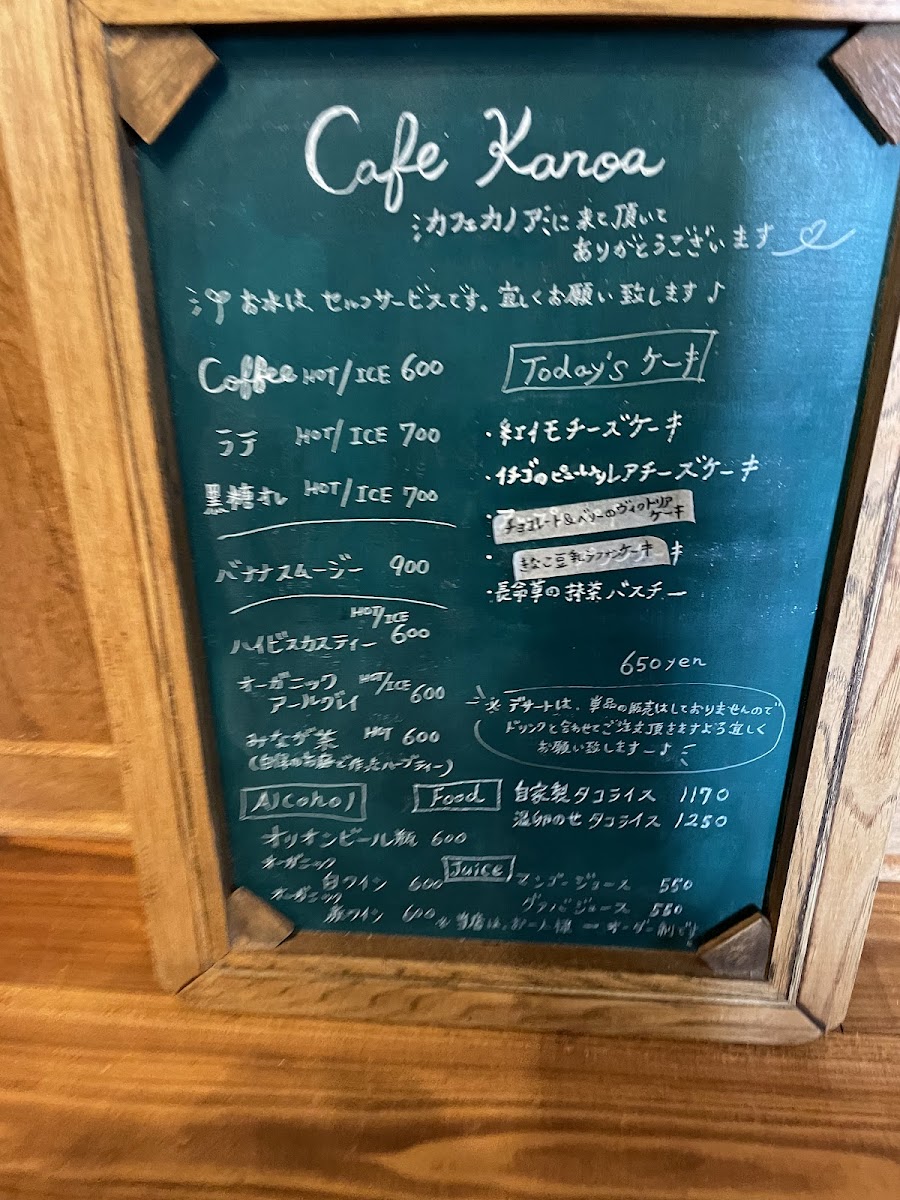 Cafe Kanoa
カフェカノアに来て頂いて
ありがとうございます
お水は、セルフサービスです。宜しくお願い致します♪
Coffee HOT/ICE 600
ラテ HOT/ICE 700
黒糖オレ HOT/ICE 700
バナナスムージー 900
HOT/ICE
ハイビスカスティー 600
オーガニック HOT/ICE
アールグレイ 600
みなが茶 HOT 600
Today's ケーキ
・紅イモチーズケーキ
・イチゴの レアチーズケーキ
・チョコレート&ベリーのヴィクトリア
ケーキ
・きなこ豆乳シフォンケーキ キ
・長命草の抹茶バスチー
650yen
※デザートは、単品の販売はしておりませんので
ドリンクと合わせてご注文頂きますよう宜しく
お願い致しますー♪
Alcohol
オリオンビール瓶 600
オーガニック
白ワイン 600
オーガニック
赤ワイン 600
Food
自家製タコライス 1170
温卵のせタコライス 1250
Juice
マンゴージュース 550
グァバジュース 550
※当店は、お一人様一オーダー制です